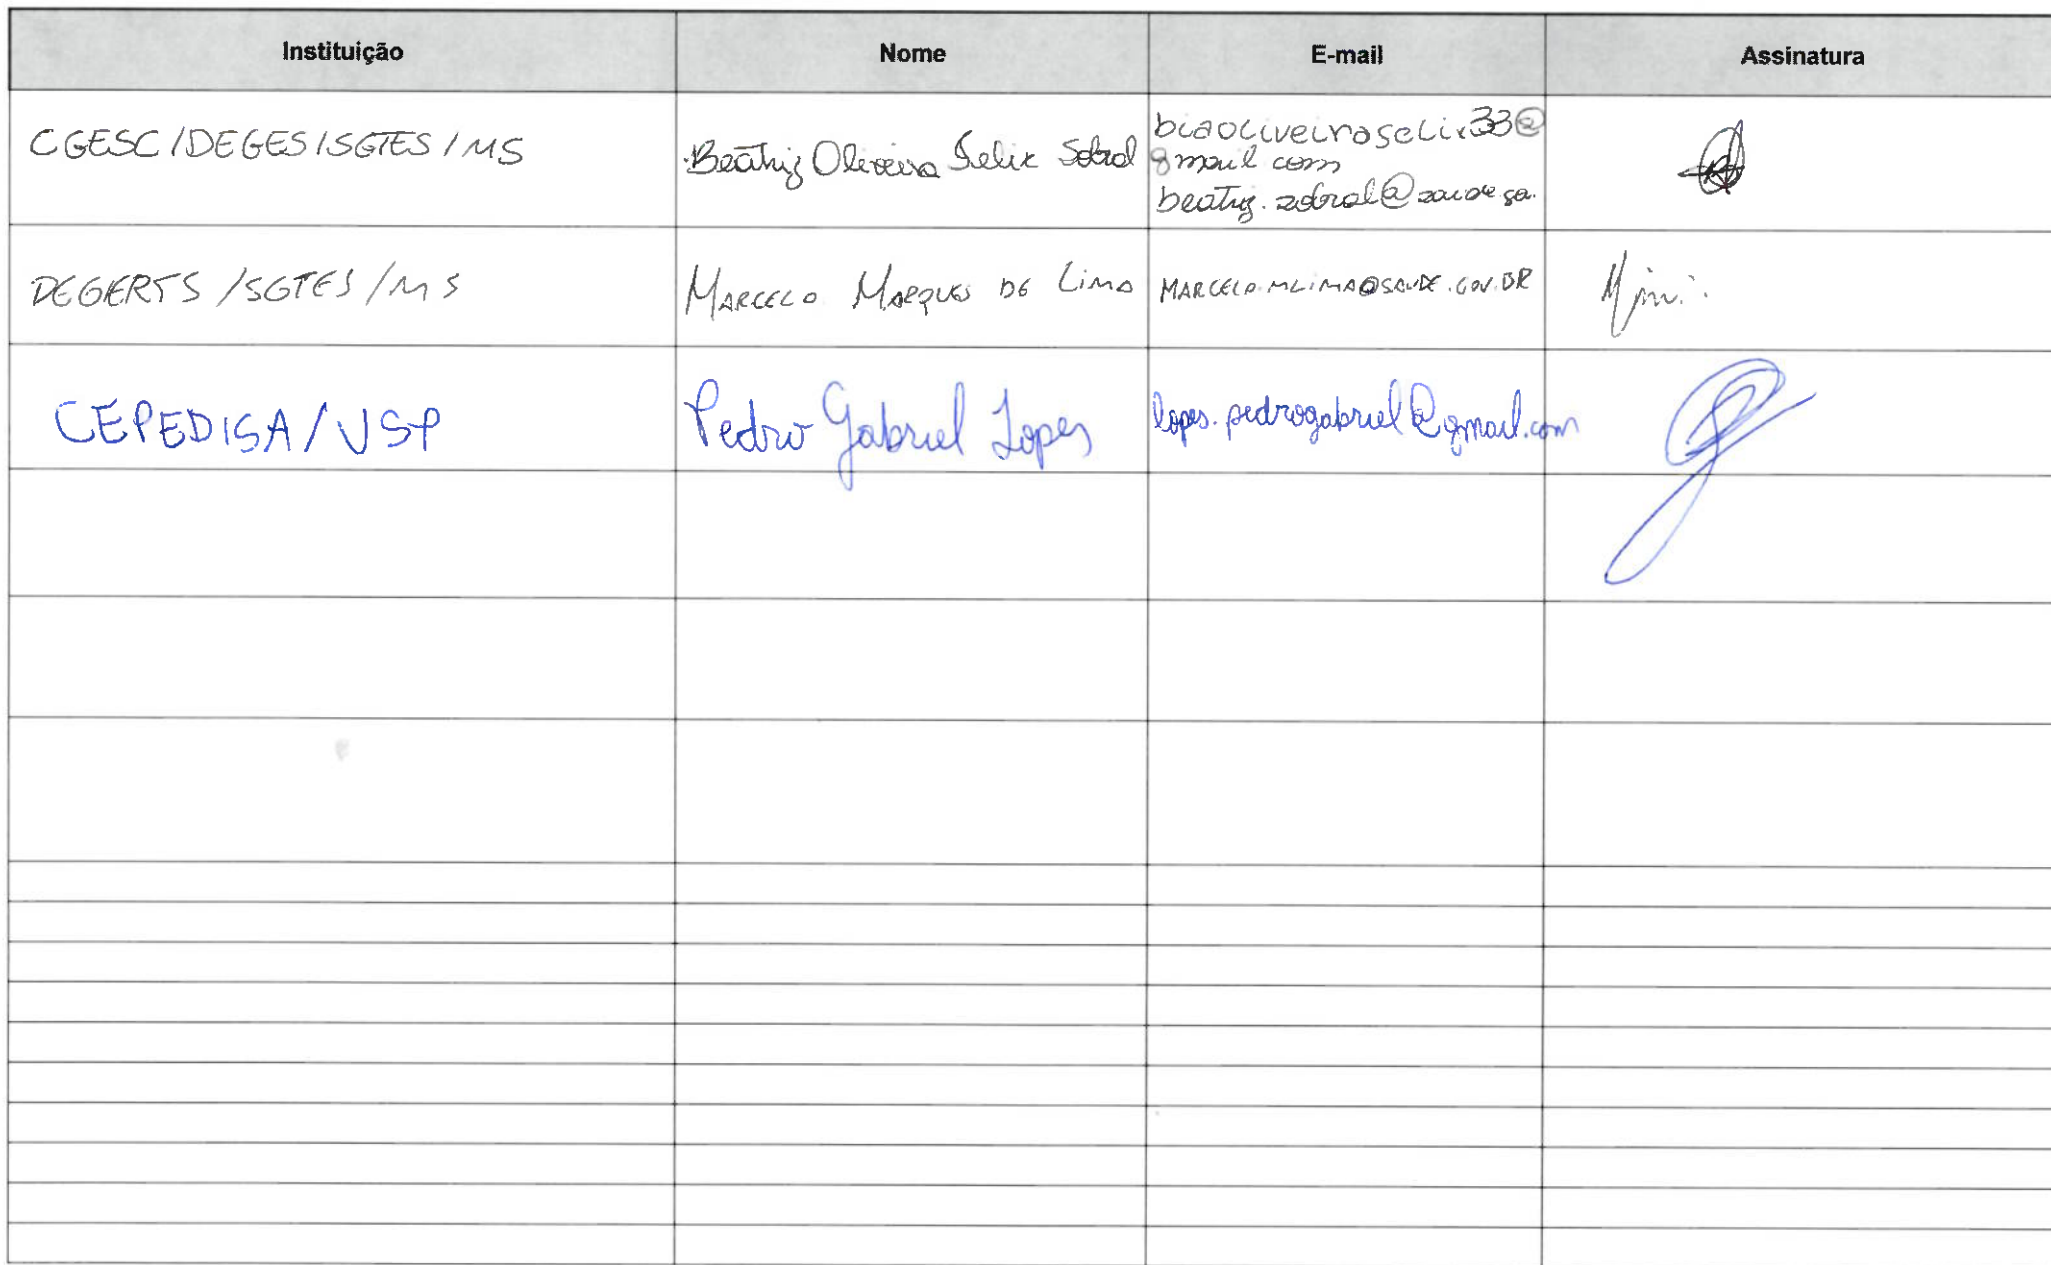 Instituição Nome E-mail Assinatura
CGESC/DEGES/SGTES/MS Beatriz Oliveira Felix Sobral biaoliveirafelix33@
gmail.com
beatriz.sobral@saude.go.
DEGERTS/SGTES/MS MARCELO MARQUES DE LIMA MARCELO.MLIMA@SAUDE.GOV.BR
CEPEDISA/USP Pedro Gabriel Lopes lopes.pedrogabriel@gmail.com